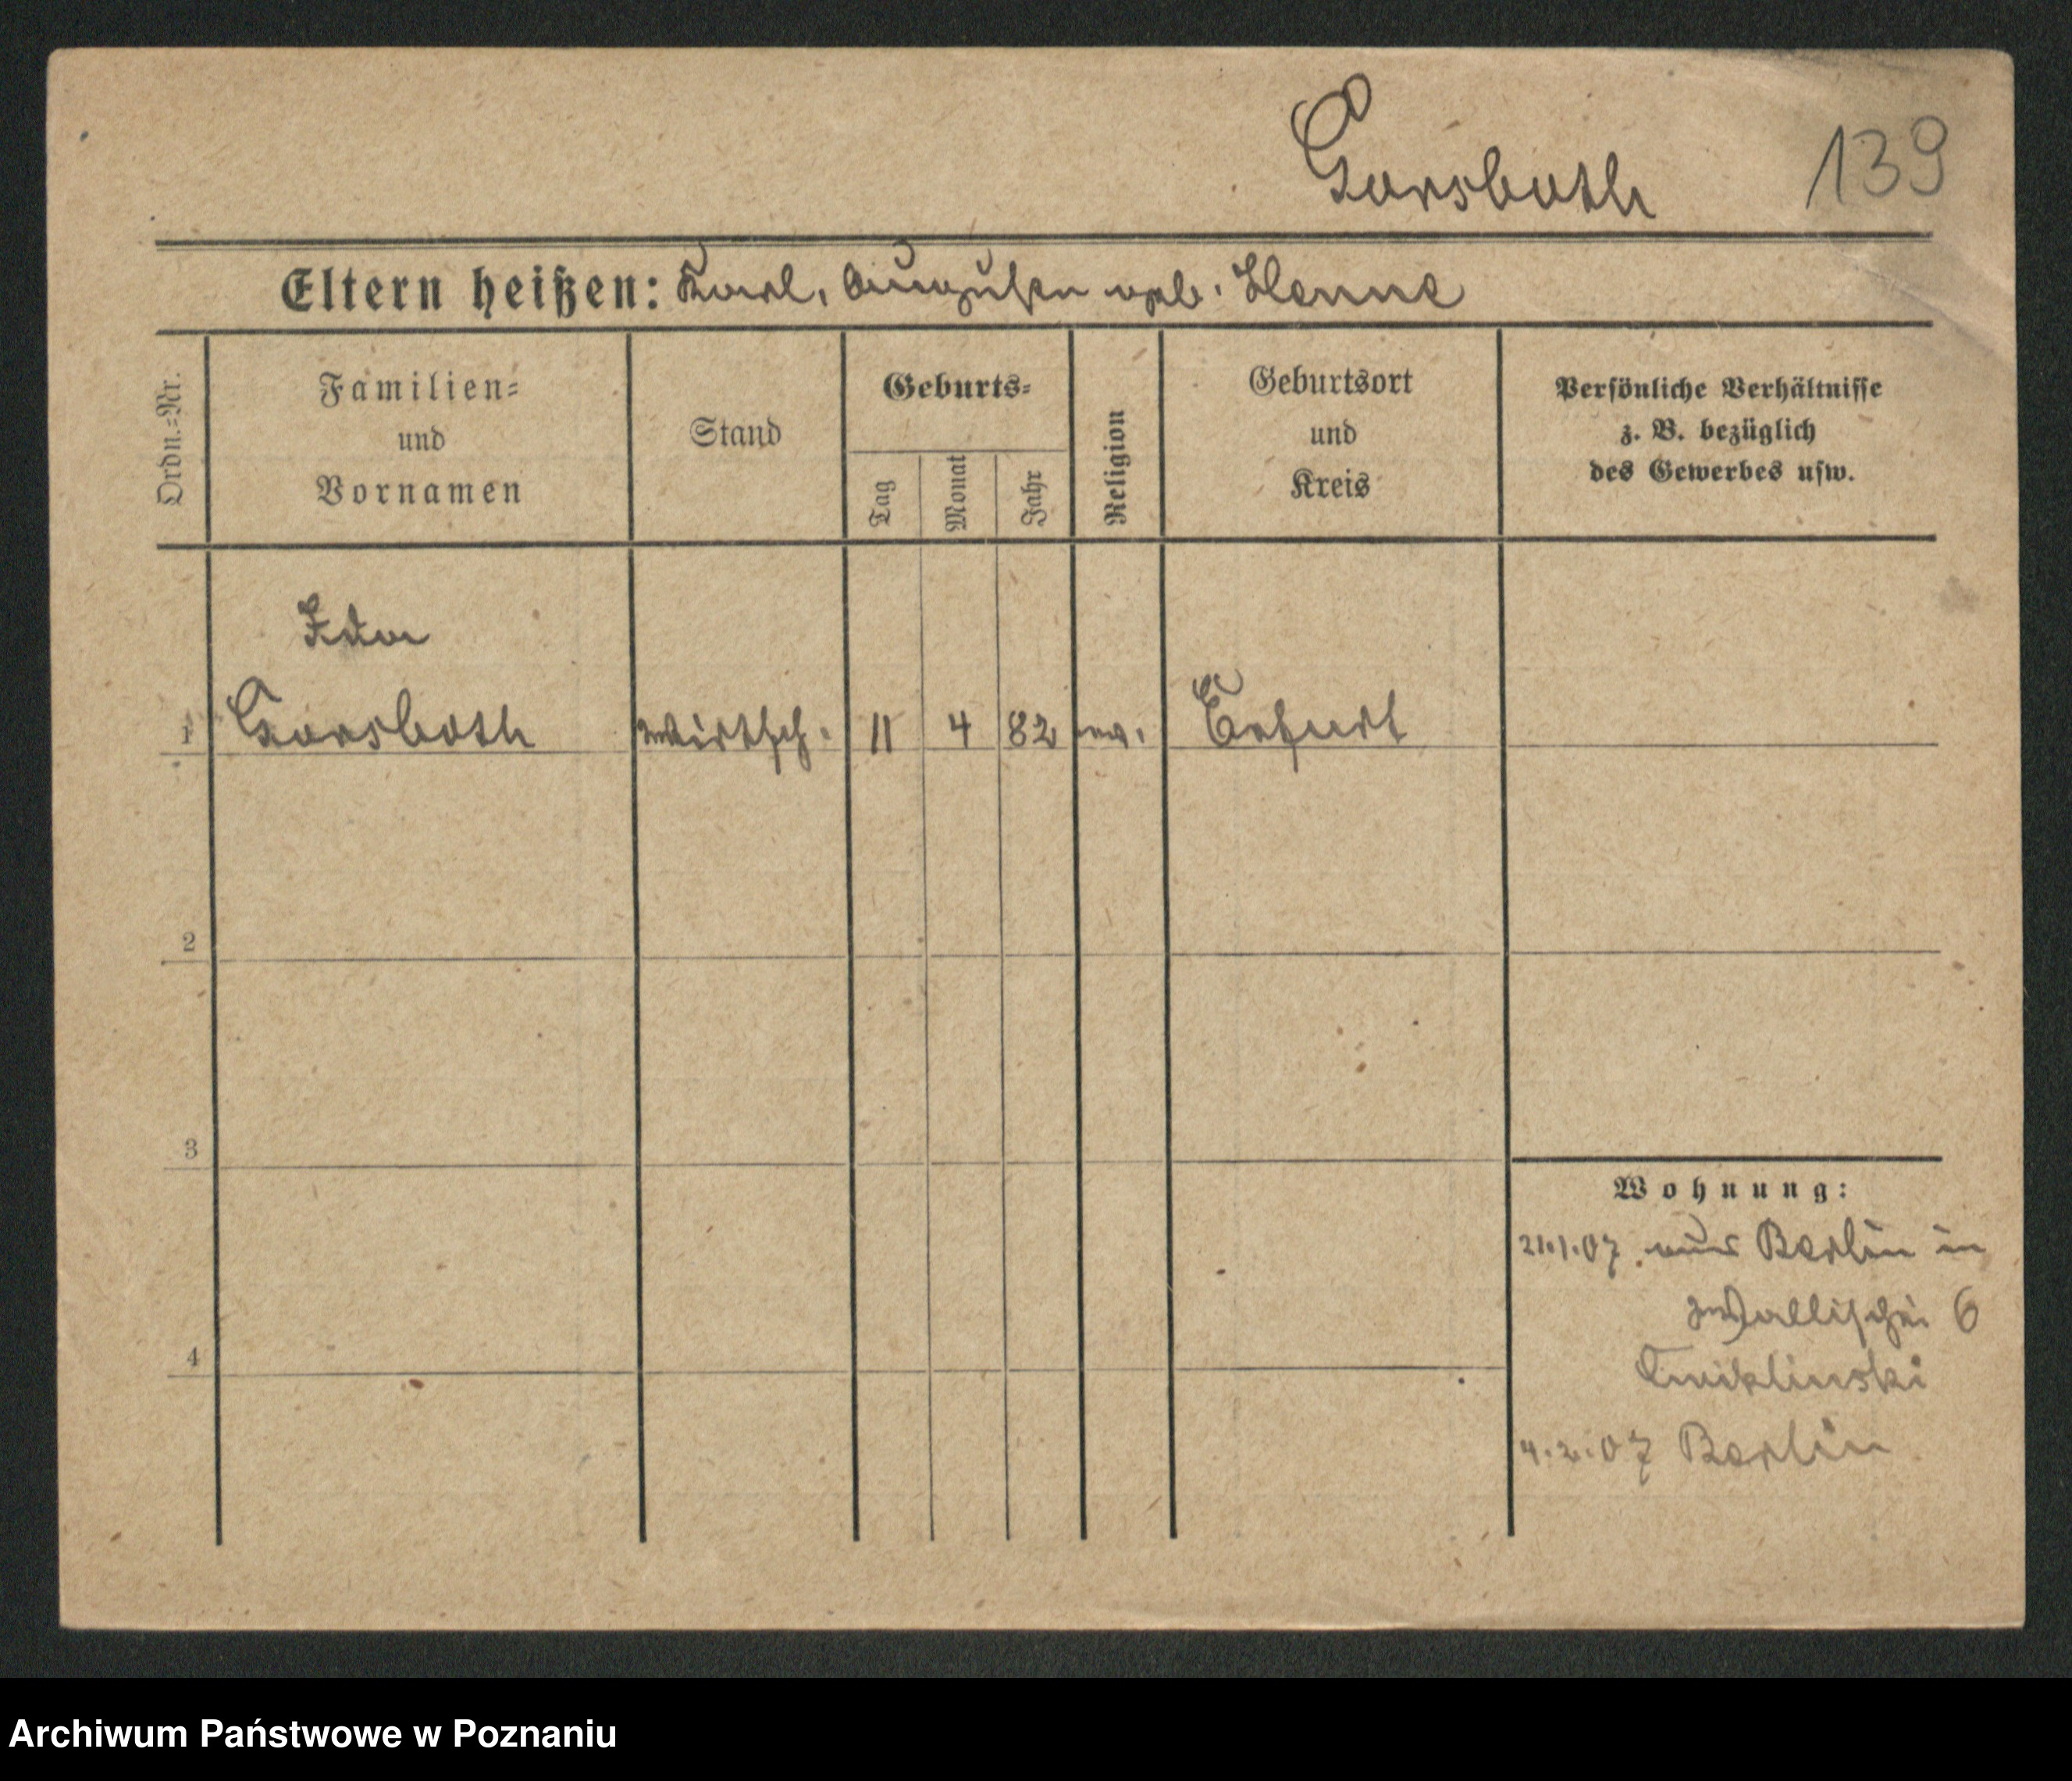 Garsboth
139
Eltern heißen: Karl, Auguste geb. Henne
Ordn.=Nr.
Familien=
und
Vornamen
Stand
Geburts=
Tag
Monat
Jahr
Religion
Geburtsort
und
Kreis
Persönliche Verhältnisse
z. B. bezüglich
des Gewerbes usw.
Ida
1 Garsboth Wirtsch. 11 4 82 ev. Erfurt
2
3
4
Wohnung:
21.1.07 aus Berlin in
Wallischei 6
Cwiklinski
4.2.07 Berlin
Archiwum Państwowe w Poznaniu